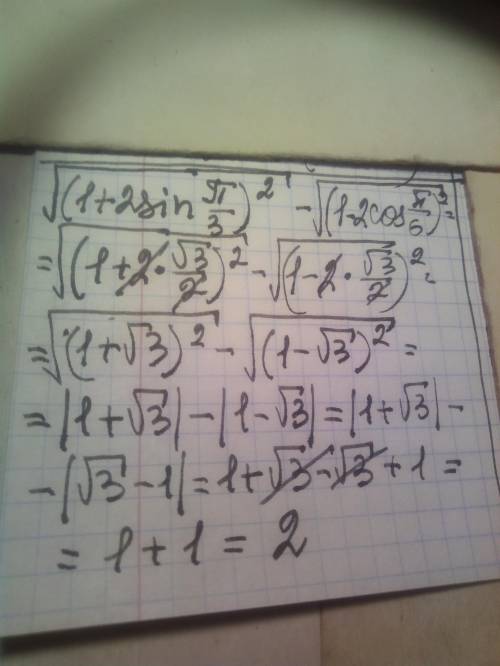 √(1+2sin π/3)² - √(1-2cos π/6)² =
= √(1+2·√3/2)² - √(1-2·√3/2)² =
= √(1+√3)² - √(1-√3)² =
= |1+√3| - |1-√3| = |1+√3| -
- |√3-1| = 1+√3-√3+1 =
= 1+1 = 2